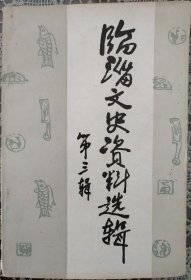 临淄文史资料选辑
第三辑